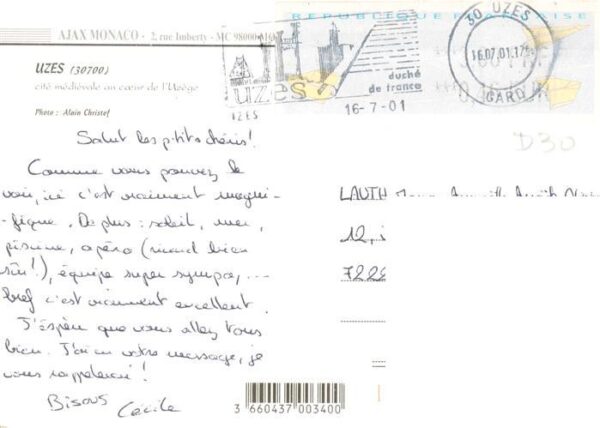 AJAX MONACO - 2, rue Imberty - MC 98000
UZES (30700)
cité médiévale au cœur de l'Uzège
Photo : Alain Christof
REPUBLIQUE FRANÇAISE
uzès
UZES
duché
de france
16-7-01
30 UZES
16.07.01.17
GARD
D30
Salut les p'tits chéris !
Comme vous pouvez le
voir, ici c'est vraiment magni-
fique. De plus : soleil, mer,
piscine, apéro (ricard bien
sûr !), équipe super sympa, ...
bref c'est vraiment excellent.
J'espère que vous allez tous
bien. J'ai eu votre message, je
vous rappelerai !
Bisous
Cécile
LAUTH
12,
722
3 660437 003400